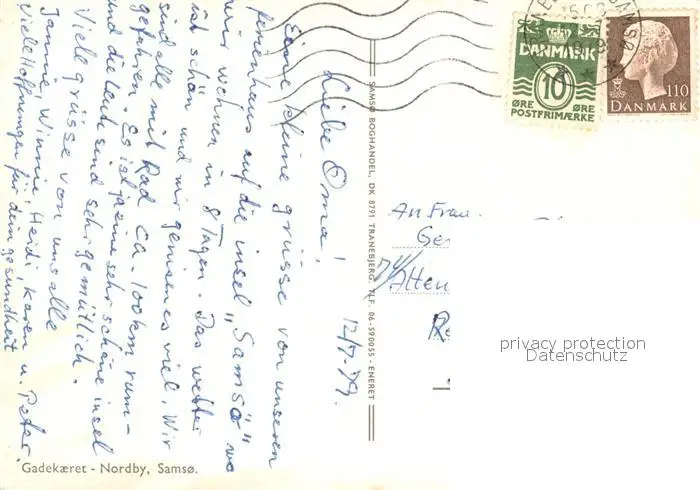 12/7-79.
Liebe Oma!
Eine kleine grüsse von unseren
ferienhaus auf die insel "Samsö" wo
wir wohnen in 8 Tagen. Das wetter
ist schön und wir geniesen es viel. Wir
sind alle mit Rad ca. 100 km rum-
gefahren. Es ist gerne sehr schöne insel
und die leute sind sehr gemütlich.
Viele grüsse von uns alle
Jammie, Winnie, Heidi, Karen u. Peter.
Viele Hoffnungen für dein gesundheit
Gadekæret - Nordby, Samsø.
SAMSØ BOGHANDEL, DK 8791 TRANEBJERG. TLF. 06-590055 - ENERET
DANMARK
10
ØRE ØRE
POSTFRIMÆRKE
110
DANMARK
An Frau
Ge
Alten
privacy protection
Datenschutz